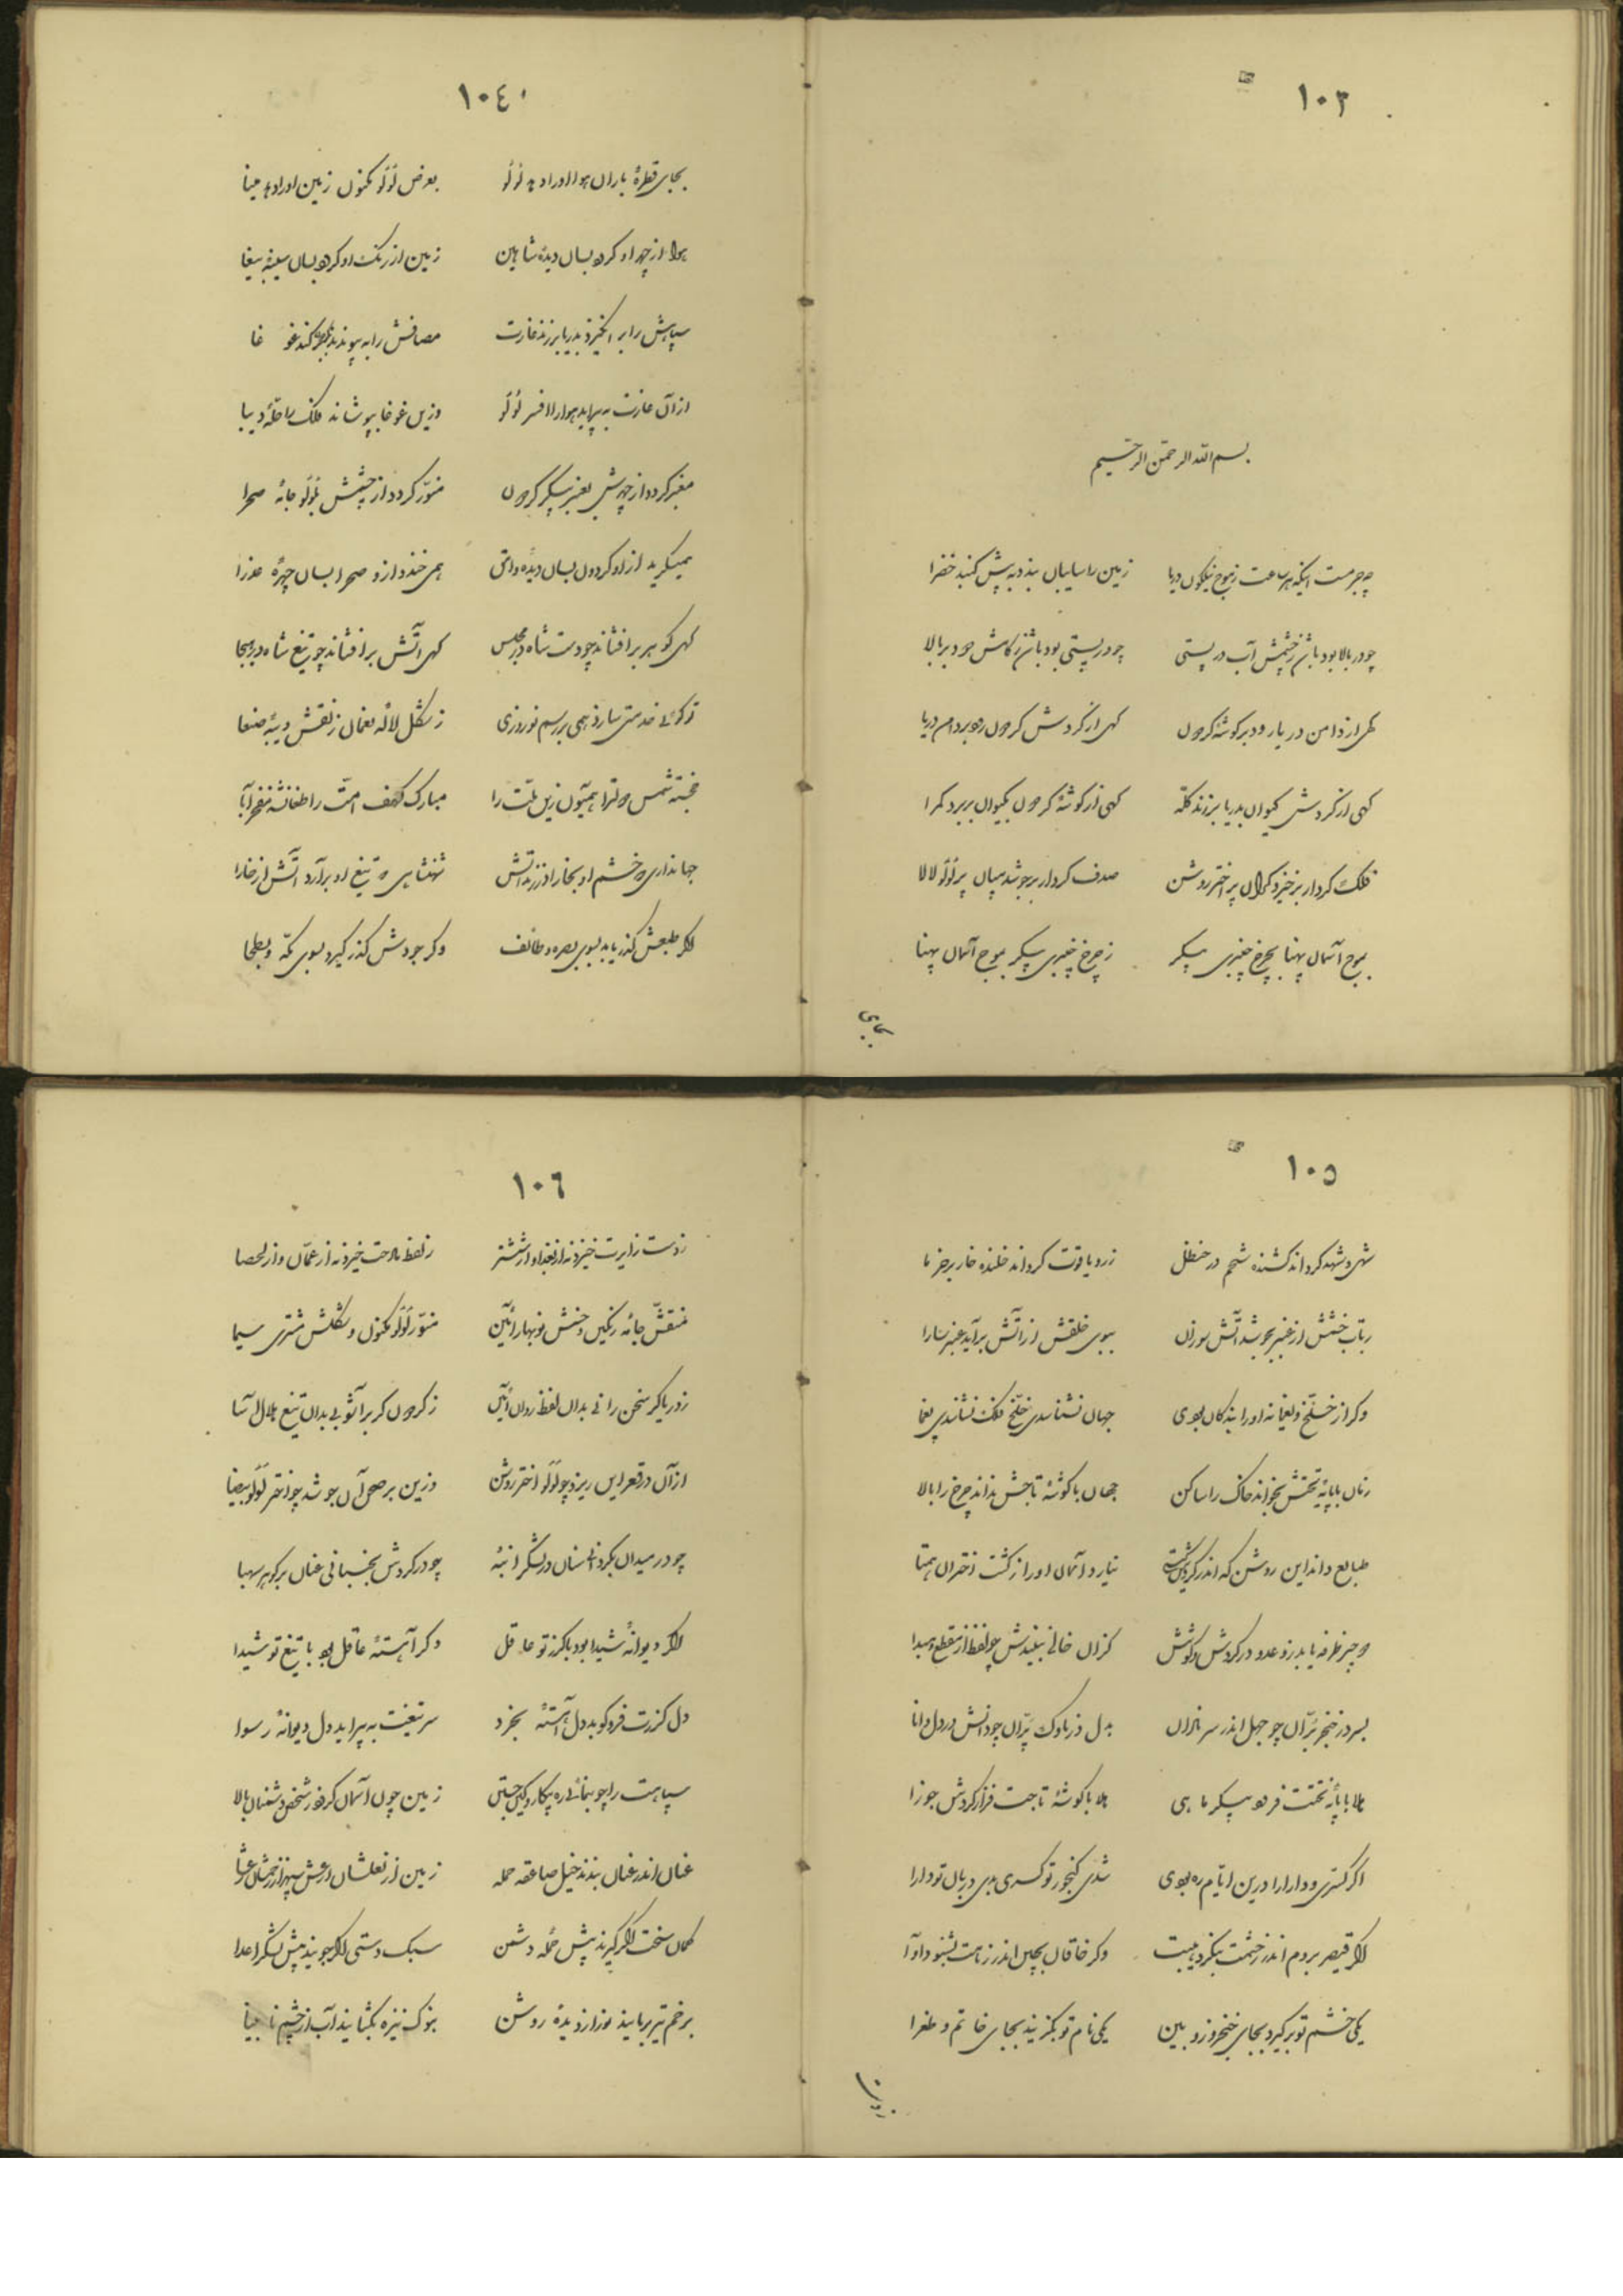 ١٠٣
بسم الله الرحمن الرحیم
چه جرمست اینکه هر ساعت ز موج نیلگون دریا زمین را سایبان بندد به پیش گنبد خضرا
چو در بالا بود باشد ز چشمش آب در پستی چو در پستی بود باشد ز کامش دود بر بالا
گهی از دامن دریا رود بر گوشه گردون گهی از گردش گردون رود بر دامن دریا
گهی از گردش کیوان بدریا برزند کله گهی از گوشه گردون بکیوان بر برد کمرا
فلک کردار برخیزد کران پر اختر روشن صدف کردار برجوشد میان پر لؤلؤ لالا
بموج آسمان پهنا بچرخ چنبری پیکر ز چرخ چنبری پیکر بموج آسمان پهنا
بجای
١٠٤
بجای قطره باران هوا او را دهد لؤلؤ بعرض لؤلؤ مکنون زمین او را دهد مینا
هوا از چهر او گردد بسان دیده شاهین زمین از رنگ او گردد بسان سینه ببغا
سپاهش را برانگیزد بدریا برزند غارت مصافش را به پیوندد بگردون برکند غوغا
از آن غارت به پیراید هوا را افسر لؤلؤ وزین غوغا بپوشاند فلک را حله دیبا
معنبر گردد از چهرش بعنبر پیکر گردون منور گردد از چشمش بلؤلؤ جامه صحرا
همیگرید از او گردون بسان دیده وامق همی خندد ازو صحرا بسان چهره عذرا
گهی گوهر برافشاند چو دست شاه در مجلس گهی آتش برافشاند چو تیغ شاه در هیجا
تو گوئی خدمتی سازد همی بر رسم نوروزی ز شکل لاله نعمان ز نقش دیبه صنعا
خجسته شمس دولت را همیون زین ملت را مبارک کهف امت را طغانشه مفخر آبا
جهانداری که خشم او بخار اندر زند آتش شهنشاهی که تیغ او برآرد آتش از خارا
اگر طبعش گذر یابد بسوی بصره و طائف وگر جودش گذر گیرد بسوی مکه و بطحا
١٠٥
شهی و شهد گرداند کشنده شحم در حنظل زر و یاقوت گرداند خلنده خار بر خرما
ز تاب خشمش از عنبر بجوشد آتش سوزان ببوی خلقش از آتش برآید عنبر سارا
وگر از خلخ و یغما نه او را بندگان بودی جهان نشناسدی خلخ فلک نشناسدی یغما
زمان با پایه تختش نخواند خاک را ساکن جهان با گوشه تاجش نداند چرخ را بالا
طبایع داند این روشن که اندر گردش گیتی نیارد آسمان او را ز گشت اختران همتا
دو چیز طرفه یابد زو عدو در گردش و کوشش کزان خالی نبیندش چو لفظ از مقطع و مبدا
بسر در خنجر بران چو جهل اندر سر نادان بدل در ناوک پران چو دانش در دل دانا
بلا با پایه تختت فرود پیکر ماهی بلا با گوشه تاجت فراز گردش جوزا
اگر کسری و دارا را درین ایام ره بودی شدی گنجور تو کسری بدی دربان تو دارا
اگر قیصر بروم اندر ز خشمت بنگرد هیبت وگر خاقان بچین اندر ز نامت بشنود آوا
یکی خشم تو برگیرد بجای خنجر و زوبین یکی نام تو بگزیند بجای خاتم و طغرا
زدست
١٠٦
ز دست زایرت خیزد نه از بغداد و از ششتر ز لفظ مادحت خیزد نه از عمان و از لحصا
منقش جامه رنگین و جنسش نوبهار آئین منور لؤلؤ مکنون و شکلش مشتری سیما
ز دریا گر سخن رانی بدان لفظ روان آئین ز گردون گر برآشوبی بدان تیغ هلال آسا
از آن در قعر این ریزد چو لؤلؤ اختر روشن وزین بر صحن آن جوشد چو اختر لؤلؤ بیضا
چو در میدان بگردانی سنان در لشگر انبه چو در گردش بجنبانی عنان بر گوهر شهبا
اگر دیوانه شیدا بود با گرز تو عاقل وگر آهسته عاقل بود با تیغ تو شیدا
دل گرزت فرو کوبد دل آهسته بخرد سر تیغت به پیراید دل دیوانه رسوا
سپاهت را چو بنمائی ره پیکار و کین جستن زمین چون آسمان گردد ز شخص دشمنان بالا
عنان اندر عنان بندند خیل صاعقه حمله زمین از نعلشان ارعش سپهر از زخمشان اعشا
کمان سخت اگر گیرند پیش حمله دشمن سبک دستی اگر جویند پیش لشگر اعدا
بزخم تیر بربایند نور از دیده روشن بنوک نیزه بگشایند آب از چشم نابینا